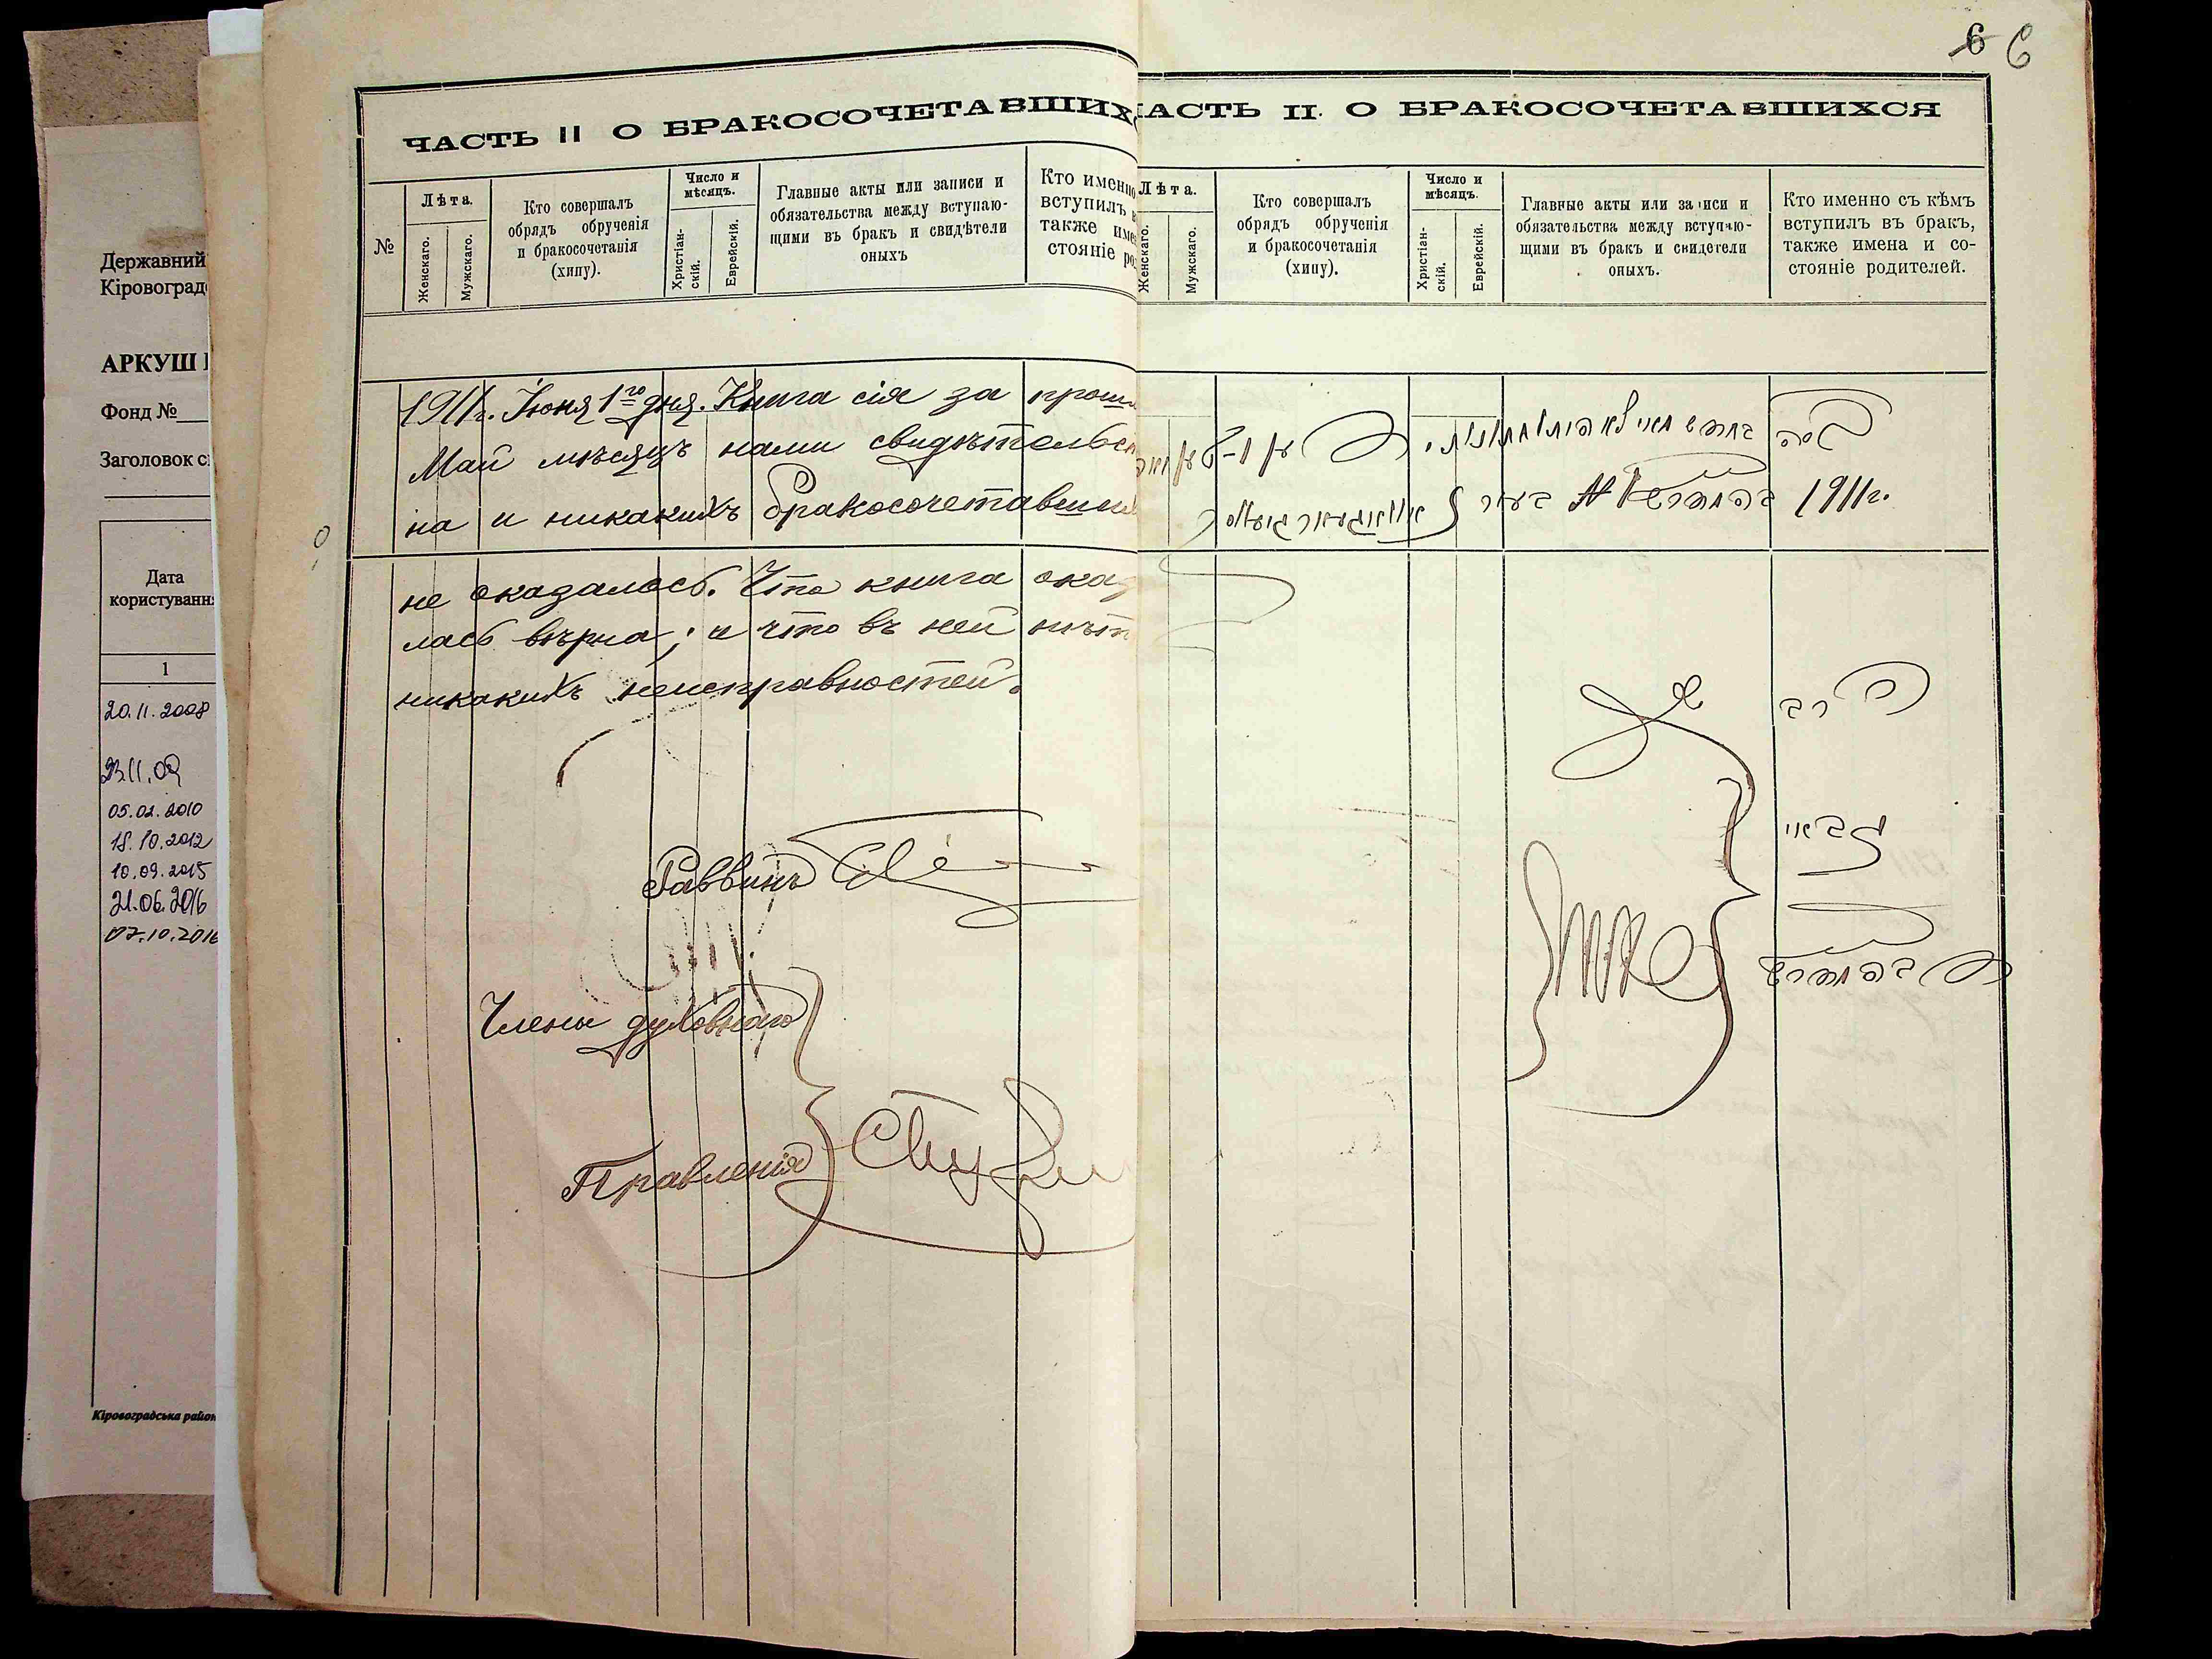 Державний
Кіровоград
АРКУШ
Фонд №
Заголовок с
Дата
користуванн
1
20.11.2008
23.11.09
05.02.2010
18.10.2012
10.09.2015
21.06.2016
07.10.2016
Кіровоградська район
ЧАСТЬ II О БРАКОСОЧЕТАВШИХ
№
Лѣта.
Женскаго.
Мужскаго.
Кто совершалъ
обрядъ обрученія
и бракосочетанія
(хипу).
Число и
мѣсяцъ.
Христіан-
скій.
Еврейскій.
Главные акты или записи и
обязательства между вступаю-
щими въ бракъ и свидѣтели
оныхъ
Кто именно
вступилъ в
также име
стояніе ро
1911г. Іюня 1го дня. Книга сія за прош
Май мѣсяцъ нами свидѣтельс
на и никакихъ бракосочетавши
не оказалось. Что книга оказ
лась вѣрна; и что въ ней нѣт
никакихъ неисправностей.
Раввинъ
Члены духовнаго
Правленія
6 6
АСТЬ II. О БРАКОСОЧЕТАВШИХСЯ
Лѣта.
Женскаго.
Мужскаго.
Кто совершалъ
обрядъ обрученія
и бракосочетанія
(хипу).
Число и
мѣсяцъ.
Христіан-
скій.
Еврейскій.
Главные акты или записи и
обязательства между вступаю-
щими въ бракъ и свидетели
оныхъ.
Кто именно съ кѣмъ
вступилъ въ бракъ,
также имена и со-
стояніе родителей.
1911г.
הרב
גבאי